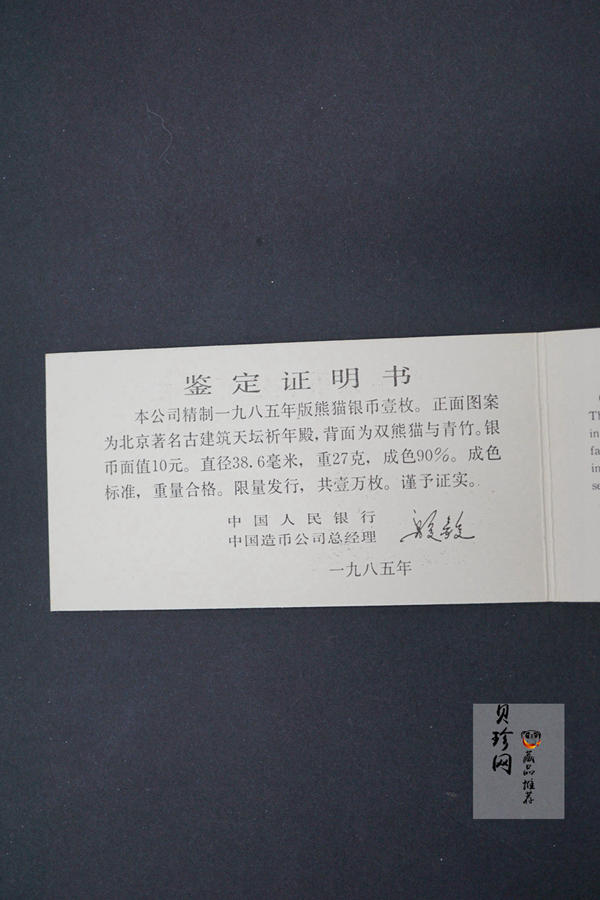 鉴定证明书
本公司精制一九八五年版熊猫银币壹枚。正面图案
为北京著名古建筑天坛祈年殿，背面为双熊猫与青竹。银
币面值10元。直径38.6毫米，重27克，成色90%。成色
标准，重量合格。限量发行，共壹万枚。谨予证实。
中国人民银行
中国造币公司总经理
一九八五年
Th
in
fa
in
se
贝珍网
藏品推荐